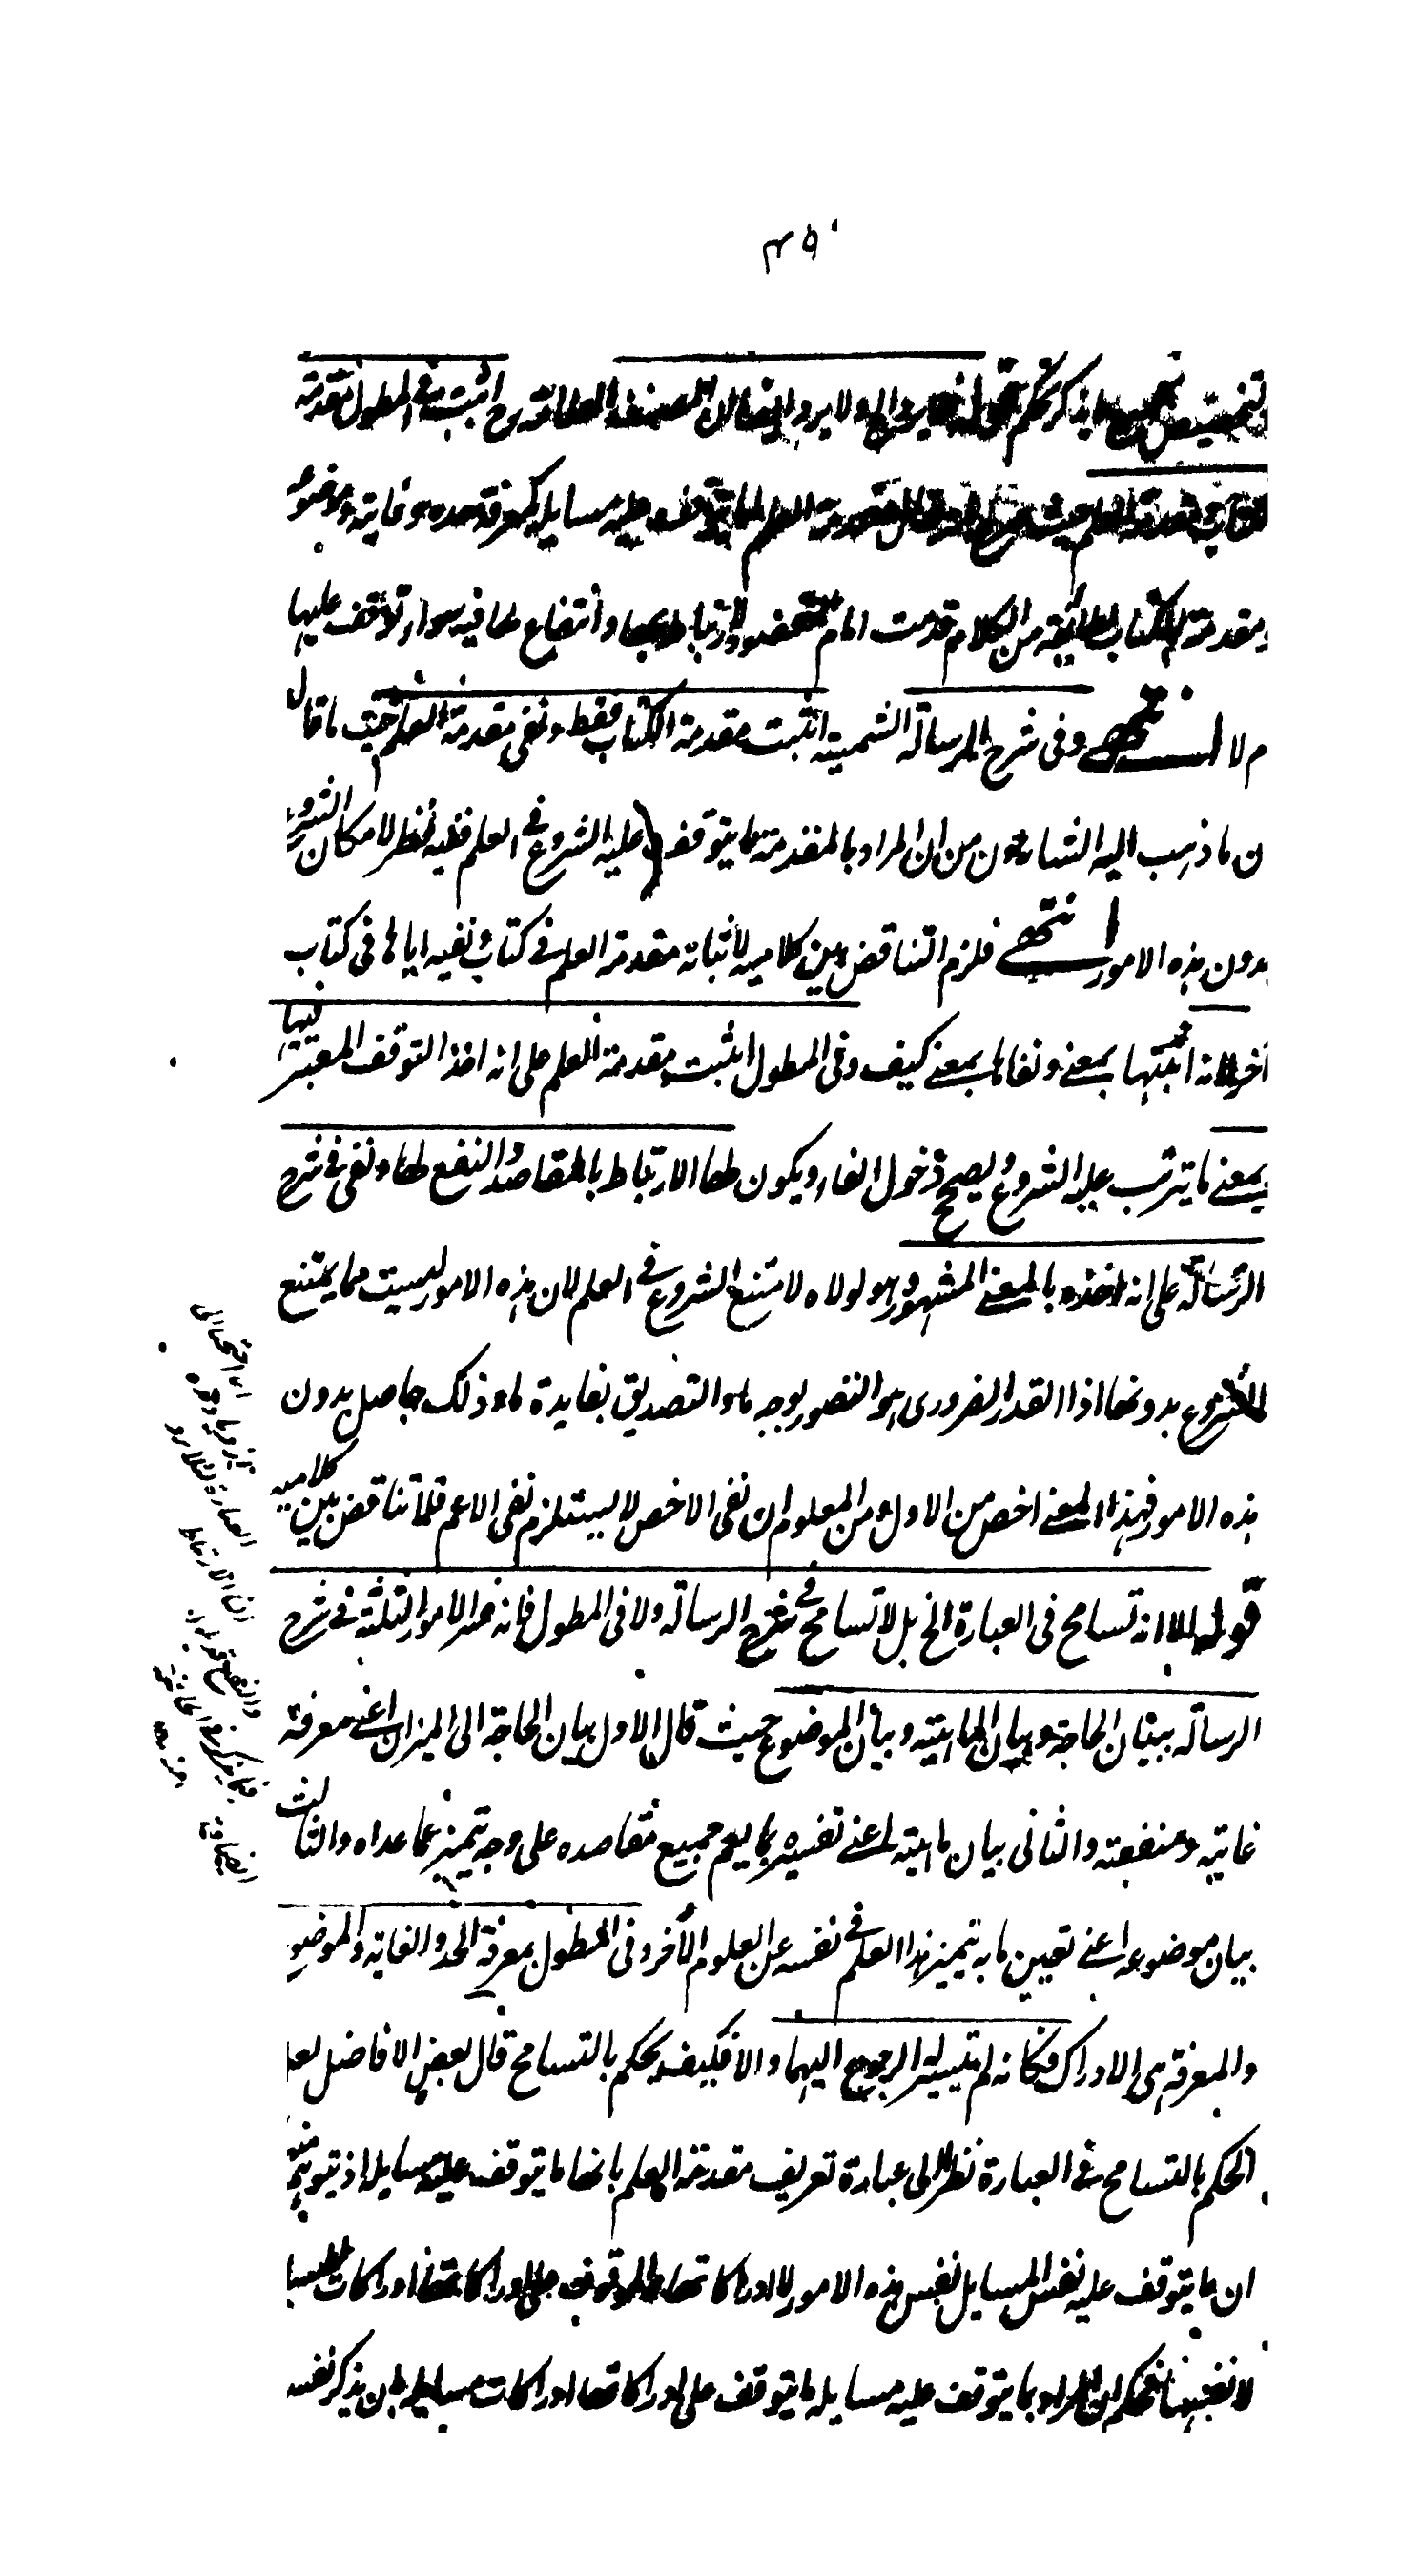 اثبت في المطول مقدمة
يقال مقدمة العلم لما يتوقف عليه مسايله كمعرفة حده وغايته وموضوعه
ومقدمة الكتاب لطائفة من الكلام قدمت امام المقصود لارتباط بها وانتفاع لها فيه سواء توقف عليها
م لا انتهى وفي شرح الرسالة الشمسية اثبت مقدمة الكتاب فقط ونفى مقدمة العلم حيث ما قال
ن ما ذهب اليه الشارحون من ان المراد بالمقدمة ما يتوقف عليه الشروع في العلم ففيه نظر لامكان الشروع
بدون هذه الامور انتهى فلزم التناقض بين كلاميه لاثباته مقدمة العلم في كتاب ونفيه اياها في كتاب
آخر لانه اثبتها بمعنى ونفاها بمعنى كيف وفي المطول اثبت مقدمة العلم على انه اخذ التوقف المعتبر فيها
بمعنى ما يترتب عليه الشروع ويصح دخول الفاء ويكون لها الارتباط بالمقاصد والنفع لها ونفى في شرح
الرسالة على انه اخذه بالمعنى المشهور وهو لولاه لامتنع الشروع في العلم لان هذه الامور ليست مما يمتنع
الشروع بدونها اذ القدر الضروري هو التصور بوجه ما والتصديق بفايدة ما وذلك حاصل بدون
هذه الامور فهذا المعنى اخص من الاول ومن المعلوم ان نفي الاخص لا يستلزم نفي الاعم فلا تناقض بين كلاميه
قوله الا انه تسامح في العبارة الخ بل لا تسامح في شرح الرسالة ولا في المطول فانه فسر الامور الثلثة في شرح
الرسالة ببيان الحاجة وبيان الماهية وبيان الموضوع حيث قال الاول بيان الحاجة الى الميزان اعني معرفة
غايته ومنفعته والثاني بيان ماهيته اعني تفسيره بما يعم جميع مقاصده على وجه يتميز عما عداه والثالث
بيان موضوعه اعني تعيين ما به يتميز هذا العلم في نفسه عن العلوم الآخر وفي المطول بمعرفة الحد والغاية والموضوع
والمعرفة هي الادراك فكانه لم يتيسر له الرجوع اليهما والا فكيف يحكم بالتسامح قال بعض الافاضل لعل
الحكم بالتسامح في العبارة نظرا الى عبارة تعريف مقدمة العلم بانها ما يتوقف عليه مسايله اذ يتوهم منه
ان ما يتوقف عليه نفس المسايل نفس هذه الامور لا ادراكاتها والموقوف على ادراكاتها ادراكات المسايل
لا نفسها فحكم ان المراد بما يتوقف عليه مسايله ما يتوقف على ادراكاتها ادراكات مسايله بان يذكر نفس